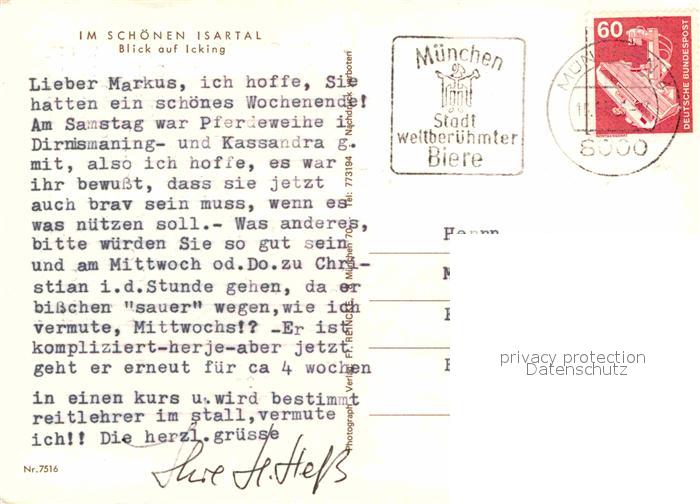 IM SCHÖNEN ISARTAL
Blick auf Icking
Lieber Markus, ich hoffe, Sie
hatten ein schönes Wochenende!
Am Samstag war Pferdeweihe i
Dirnismaning- und Kassandra g.
mit, also ich hoffe, es war
ihr bewußt, dass sie jetzt
auch brav sein muss, wenn es
was nützen soll.- Was anderes,
bitte würden Sie so gut sein
und am Mittwoch od.Do.zu Chri-
stian i.d.Stunde gehen, da er
bißchen "sauer" wegen,wie ich
vermute, Mittwochs!? -Er ist
kompliziert-herje-aber jetzt
geht er erneut für ca 4 wochen
in einen kurs u.wird bestimmt
reitlehrer im stall,vermute
ich!! Die herzl.grüsse
Ihre H. Heß
Nr.7516
Photographie Verlag Fr. REINCKE München 70 Tel: 773194 Nachdruck verboten
München
Stadt
weltberühmter
Biere
MÜN
8000
60
DEUTSCHE BUNDESPOST
Herrn
privacy protection
Datenschutz